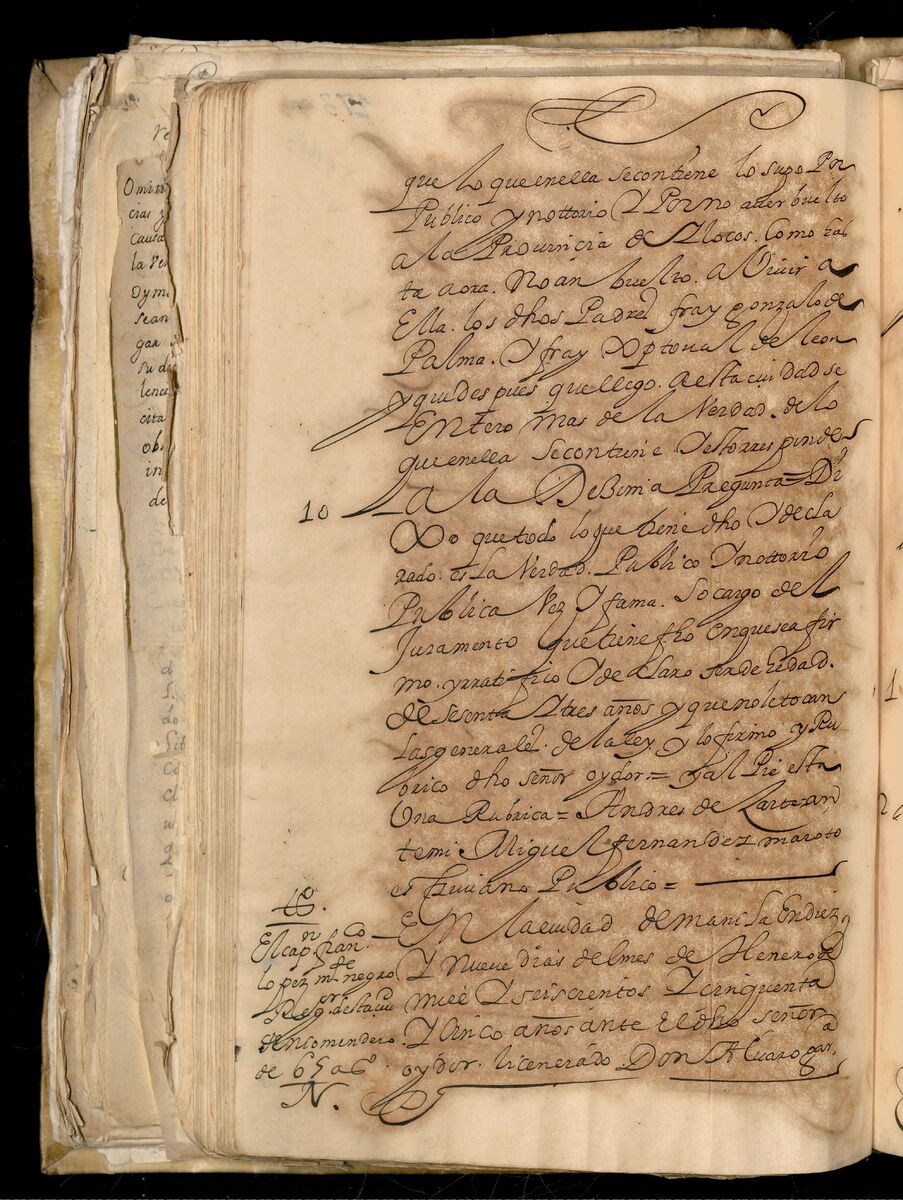 que lo que en ella se contiene lo supo Por
Publico y nottorio Y Por no auer buelto
a la Prouincia de Ylocos. Como has
ta aora. No an buelto. a Viuir a
Ella. los dhos Padres fray gonzalo de
Palma. Y fray Xptoual de leon
y que despues que llego. a esta ciudad se
Entero mas de la Verdad. de lo
que en ella se contiene Y esto rresponde
10 A la Decima Pregunta = Di
Xo que todo lo que tiene dho Y decla
rado. es La Verdad. Publico Y nottorio
Publica Voz Y fama. So cargo del
Juramento que tiene fho en que se afir
mo. y rratifico Y declaro ser de hedad.
de sesenta Y tres años y que no le tocan
las generales. de la ley y lo firmo y Ru
brico dho señor oydor = Y al Pie esta
Una Rubrica = Andres de
temi Miguel fernandez maroto
escriuano Publico =
En la ciudad de manila En diez
Y nueue dias del mes de Henero de
mill Y seiscientos Y cinquenta
Y Cinco años ante El dho señor
oydor. licenciado Don Albaro gar.a
El cap.n fran.co
lopez m.te negro
Reg.or desta ciu
encomendero
de 65 a.s
N.
Omiti
cias y
Causa
la Ve
Oy m
sean
gar
su d
lenci
cita
obs
in
de